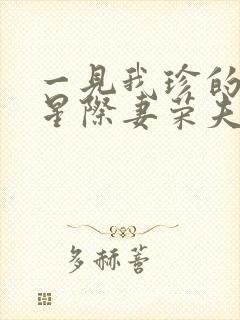 一見我珍的
星際妻荣夫
多赫萻